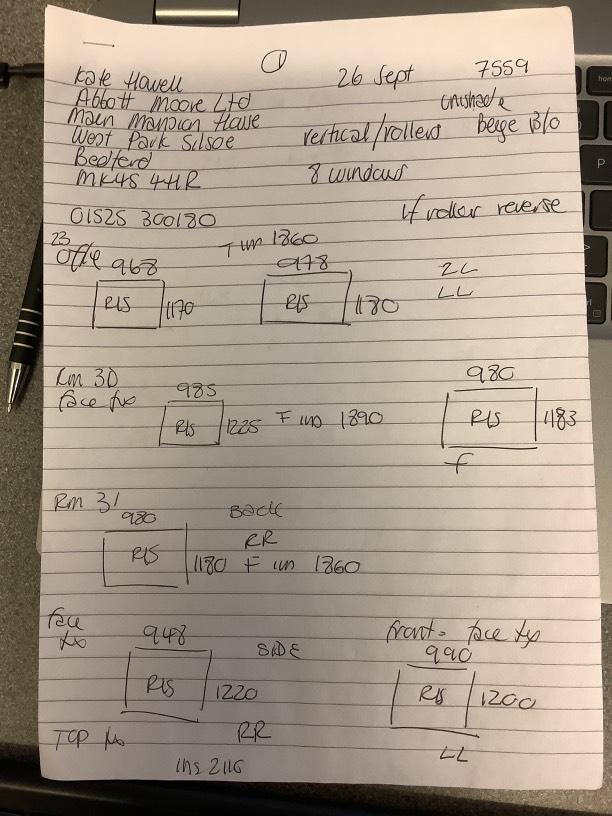 ①
26 Sept 7559
Kate Howell
Abbott Moore Ltd
Main Mansion House
West Park Silsoe
Bedford
MK45 4HR
unishade
vertical/rollers Beige B/O
8 windows
01525 300180
If roller reverse
23
Office 968
T un 1860
978
2L
LL
R/S 1170
R/S 1180
Rm 30
face fix
985
R/S 1225 F un 1890
980
R/S 1183
F
Rm 31
980
Back
RR
R/S 1180 F un 1860
face
fix
948
SIDE
R/S 1220
front - face fix
990
R/S 1200
TOP fix
RR
LL
ins 2116